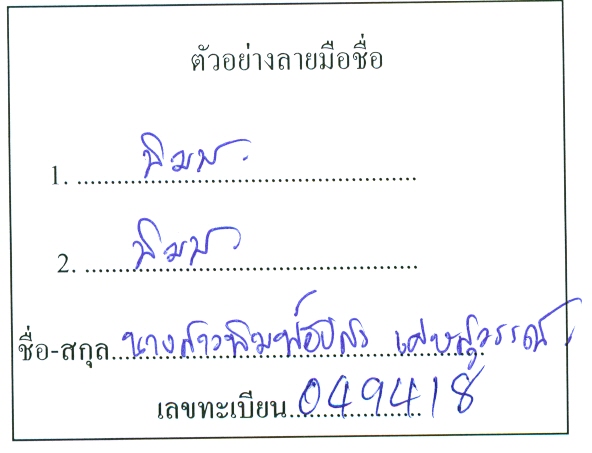 ตัวอย่างลายมือชื่อ
1. พิมพ
2. พิมพ
ชื่อ-สกุล นางสาวพิมพ์อัปสร
เลขทะเบียน 049418